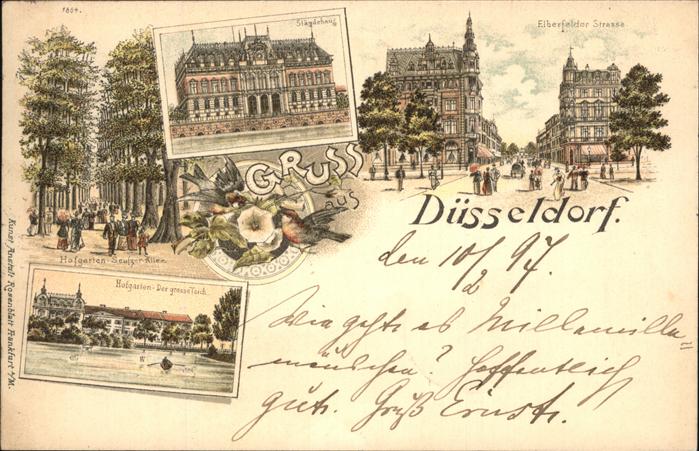 1804.
Ständehaus
Elberfelder Strasse
Gruss
aus
Düsseldorf.
Hofgarten-Seufzer-Allee
Hofgarten-Der grosse Teich
Kunst-Anstalt Rosenblatt Frankfurt a/M.
den 10/2 97.
Wie gehts es Millamilla=
mäuschen? Hoffentlich
gut. Gruß Ernst.